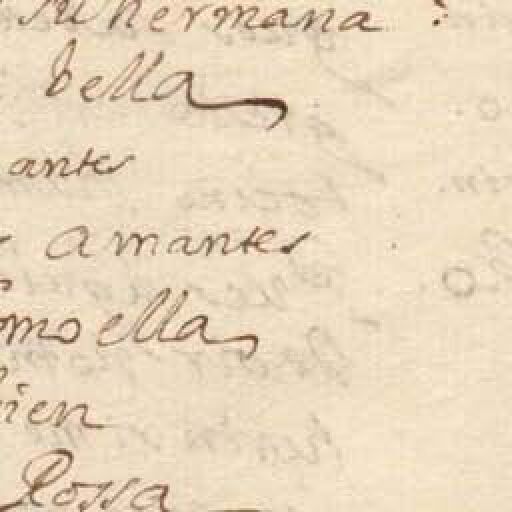 su hermana :
bella
antes
amantes
omo ella
bien
Rossa